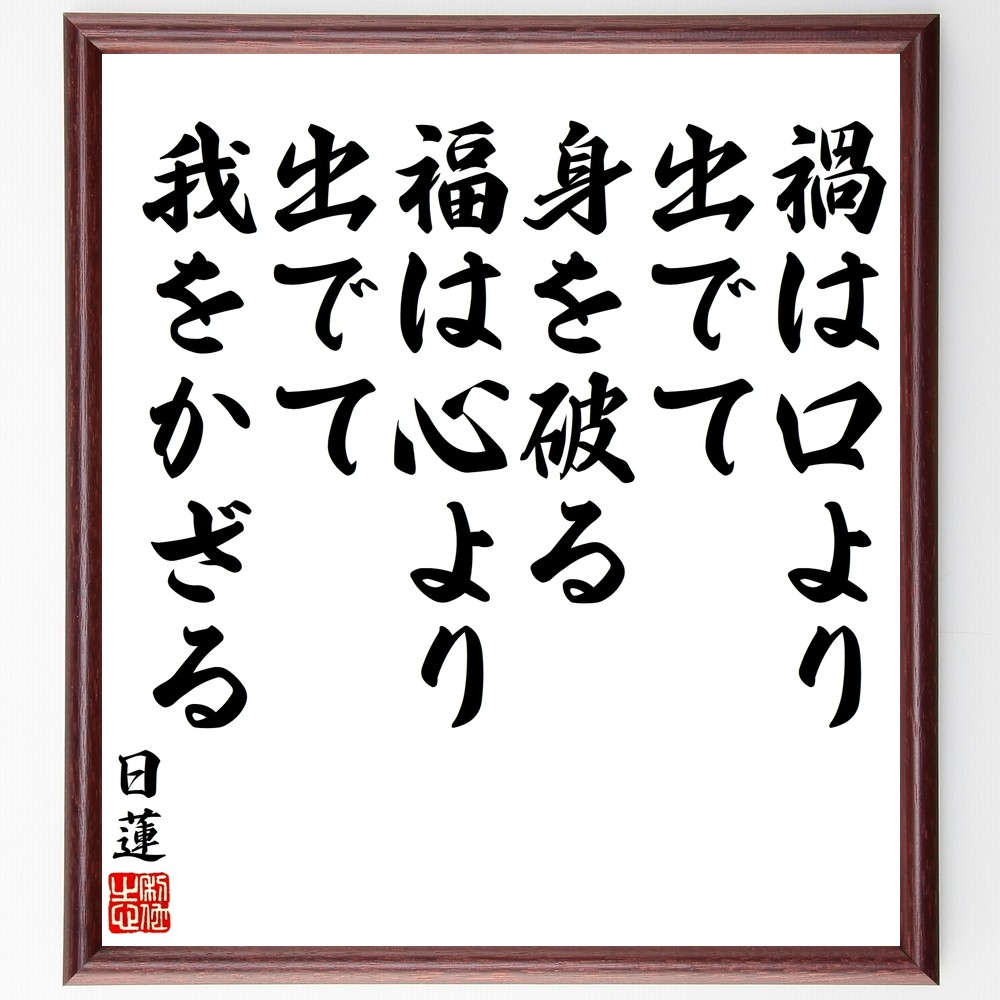 禍は口より
出でて
身を破る
福は心より
出でて
我をかざる
日蓮